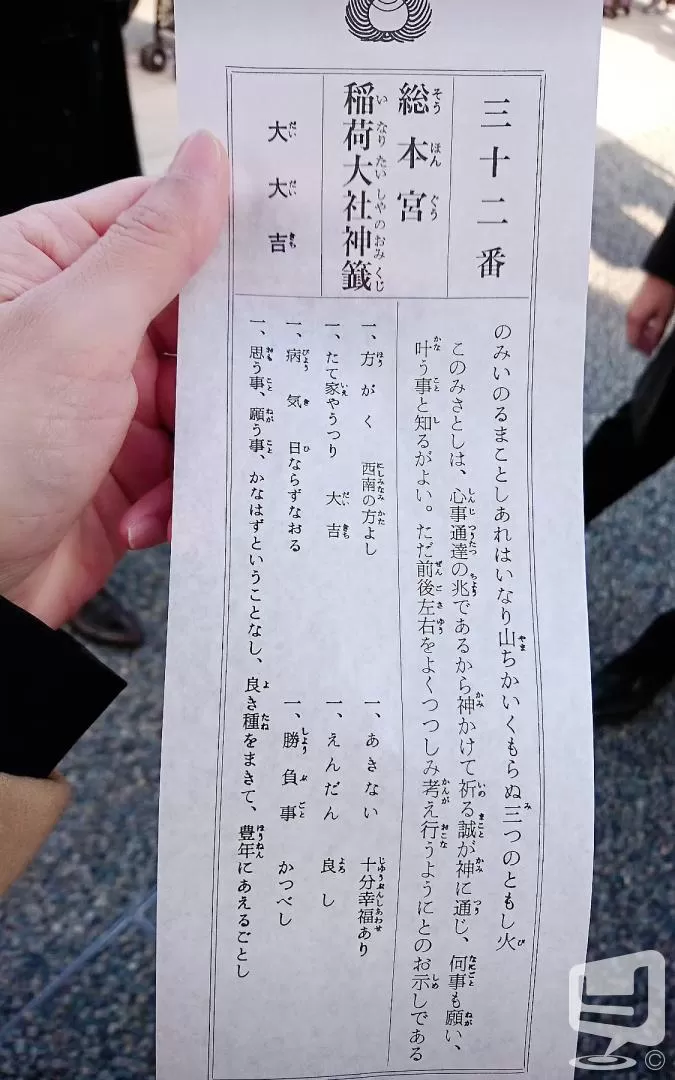 三十二番
総本宮
稲荷大社神籤
大大吉
のみいのるまことしあれはいなり山ちかいくもらぬ三つのともし火
このみさとしは、心事通達の兆であるから神かけて祈る誠が神に通じ、何事も願い、
叶う事と知るがよい。ただ前後左右をよくつつしみ考え行うようにとのお示しである
一、方がく 西南の方よし
一、あきない 十分幸福あり
一、たて家やうつり 大吉
一、えんだん 良し
一、病気 日ならずなおる
一、勝負事 かつべし
一、思う事、願う事、かなはずということなし、良き種をまきて、豊年にあえるごとし